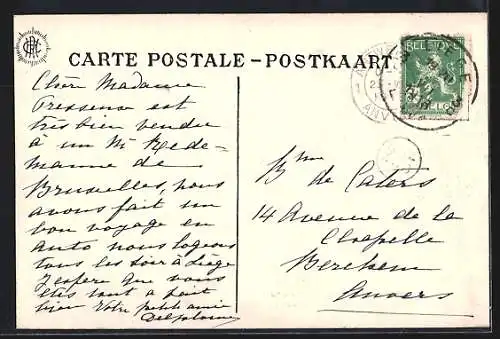 CARTE POSTALE - POSTKAART
BELGIQUE
Chère Madame
Pressense est
très bien vendu
à un Mr Rede-
manne de
Bruxelles, nous
avons fait un
bon voyage en
auto nous logeons
tous les soir à Liège
J'espère que vous
êtes tout a fait
bien Votre petit amie
Delplaine
Bnne de Caters
14 Avenue de la
Chapelle
Berchem
Anvers